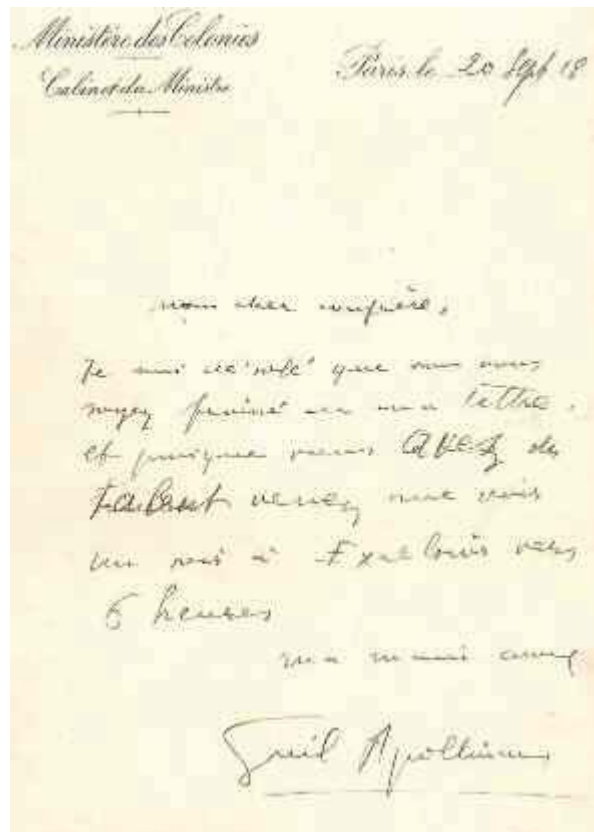 Ministère des Colonies
Cabinet du Ministre
Paris, le 20 Sept 18
mon cher confrère,
Je suis désolé que vous vous
soyez peiné ma lettre.
et puisque vous avez du
talent venez me voir
à vers
6 heures
ma main amie
Guil Apollinaire